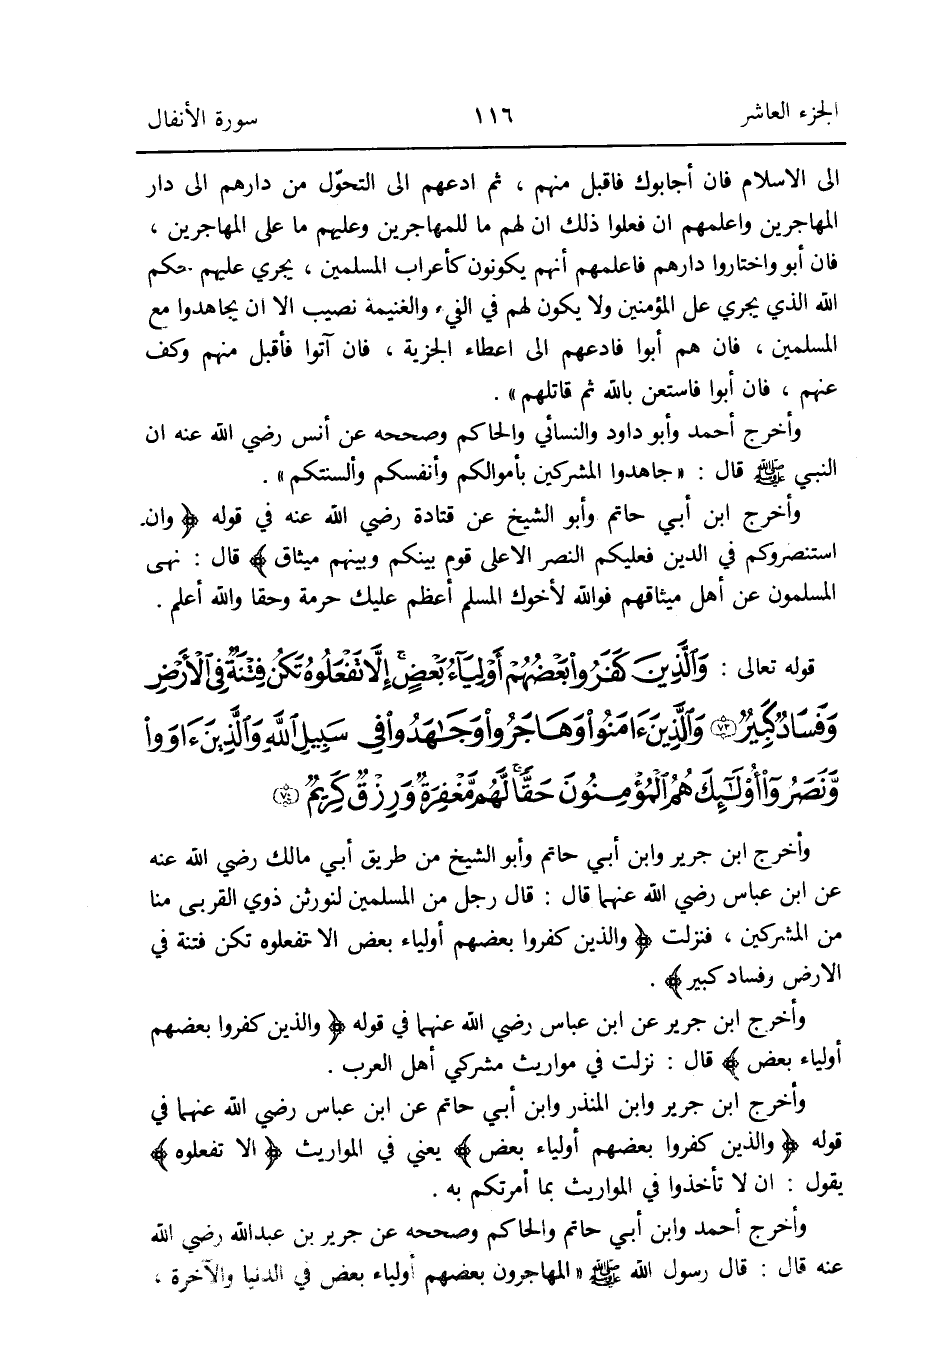 الجزء العاشر ١١٦ سورة الأنفال
الى الاسلام فان أجابوك فاقبل منهم ، ثم ادعهم الى التحوّل من دارهم الى دار
المهاجرين واعلمهم ان فعلوا ذلك ان لهم ما للمهاجرين وعليهم ما على المهاجرين ،
فان أبو واختاروا دارهم فاعلمهم أنهم يكونون كأعراب المسلمين ، يجري عليهم حكم
الله الذي يجري عل المؤمنين ولا يكون لهم في الفيء والغنيمة نصيب الا ان يجاهدوا مع
المسلمين ، فان هم أبوا فادعهم الى اعطاء الجزية ، فان آتوا فأقبل منهم وكف
عنهم ، فان أبوا فاستعن بالله ثم قاتلهم» .
وأخرج أحمد وأبو داود والنسائي والحاكم وصححه عن أنس رضي الله عنه ان
النبي ﷺ قال : «جاهدوا المشركين بأموالكم وأنفسكم وألسنتكم» .
وأخرج ابن أبي حاتم وأبو الشيخ عن قتادة رضي الله عنه في قوله ﴿ وان
استنصروكم في الدين فعليكم النصر الاعلى قوم بينكم وبينهم ميثاق ﴾ قال : نهى
المسلمون عن أهل ميثاقهم فوالله لأخوك المسلم أعظم عليك حرمة وحقا والله أعلم .
قوله تعالى : وَالَّذِينَ كَفَرُوا۟ بَعْضُهُمْ أَوْلِيَآءُ بَعْضٍ ۚ إِلَّا تَفْعَلُوهُ تَكُن فِتْنَةٌ فِى ٱلْأَرْضِ
وَفَسَادٌ كَبِيرٌ ﴿٧٣﴾ وَٱلَّذِينَ ءَامَنُوا۟ وَهَاجَرُوا۟ وَجَٰهَدُوا۟ فِى سَبِيلِ ٱللَّهِ وَٱلَّذِينَ ءَاوَوا۟
وَّنَصَرُوٓا۟ أُو۟لَٰٓئِكَ هُمُ ٱلْمُؤْمِنُونَ حَقًّا ۚ لَّهُم مَّغْفِرَةٌ وَرِزْقٌ كَرِيمٌ ﴿٧٤﴾
وأخرج ابن جرير وابن أبي حاتم وأبو الشيخ من طريق أبي مالك رضي الله عنه
عن ابن عباس رضي الله عنهما قال : قال رجل من المسلمين لنورثن ذوي القربى منا
من المشركين ، فنزلت ﴿ والذين كفروا بعضهم أولياء بعض الا تفعلوه تكن فتنة في
الارض وفساد كبير﴾ .
وأخرج ابن جرير عن ابن عباس رضي الله عنهما في قوله ﴿ والذين كفروا بعضهم
أولياء بعض ﴾ قال : نزلت في مواريث مشركي أهل العرب .
وأخرج ابن جرير وابن المنذر وابن أبي حاتم عن ابن عباس رضي الله عنهما في
قوله ﴿ والذين كفروا بعضهم أولياء بعض﴾ يعني في المواريث ﴿ الا تفعلوه ﴾
يقول : ان لا تأخذوا في المواريث بما أمرتكم به .
وأخرج أحمد وابن أبي حاتم والحاكم وصححه عن جرير بن عبدالله رضي الله
عنه قال : قال رسول الله ﷺ «المهاجرون بعضهم أولياء بعض في الدنيا والآخرة ،